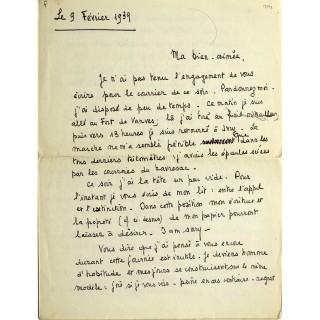 Le 9 Février 1939
Ma bien-aimée,
Je n'ai pas tenu l'engagement de vous
écrire pour le courrier de ce soir. Pardonnez-moi.
J'ai disposé de peu de temps. Ce matin je suis
allé au Fort de Vanves; là j'ai tiré au
puis vers 13 heures je suis retourné à Ivry. La
marche ne m'a semblé pénible que dans les
tous derniers kilomètres; j'avais les épaules sciées
par les courroies du havresac.
Ce soir j'ai la tête un peu vide. Pour
l'instant je vous écris de mon lit: entre l'appel
et l'extinction. Dans cette position mon écriture et
la propreté (cf ci dessus) de mon papier pourront
laisser à désirer. I am sorry.
Vous dire que j'ai pensé à vous encore
durant cette journée est inutile. Je deviens homme
d'habitude et mes jours se construisent sur le même
modèle: joie si je vous vois - peine en cas contraire - regret